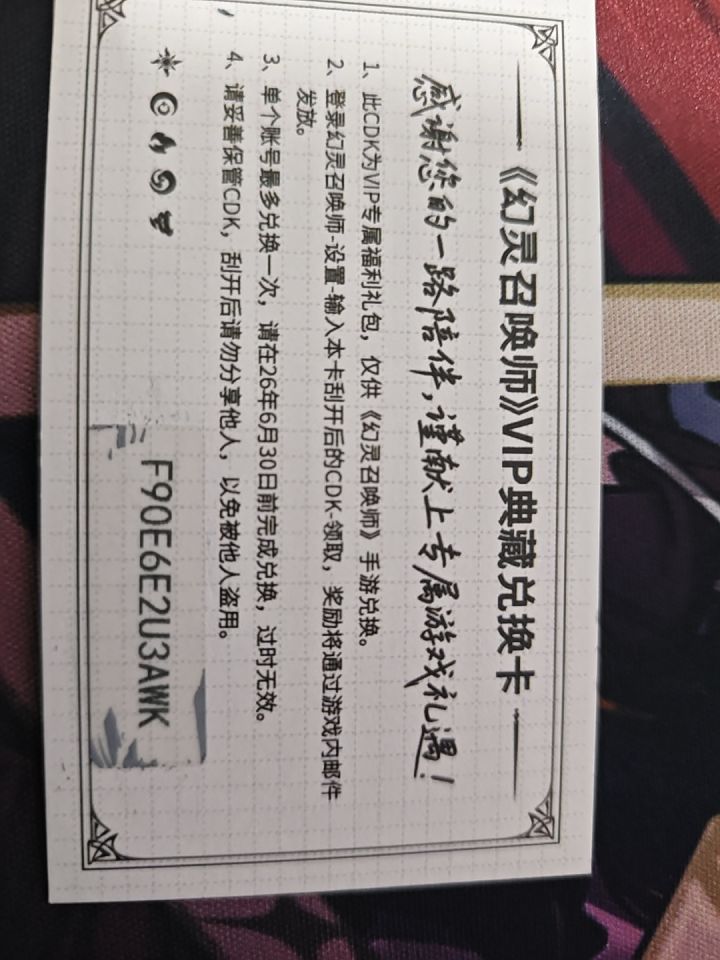 《幻灵召唤师》VIP典藏兑换卡
感谢您的一路陪伴,谨献上专属游戏礼遇!
1、此CDK为VIP专属福利礼包，仅供《幻灵召唤师》手游兑换。
2、登录幻灵召唤师-设置-输入本卡刮开后的CDK-领取，奖励将通过游戏内邮件
发放。
3、单个账号最多兑换一次，请在26年6月30日前完成兑换，过时无效。
4、请妥善保管CDK，刮开后请勿分享他人，以免被他人盗用。
F90E6E2U3AWK